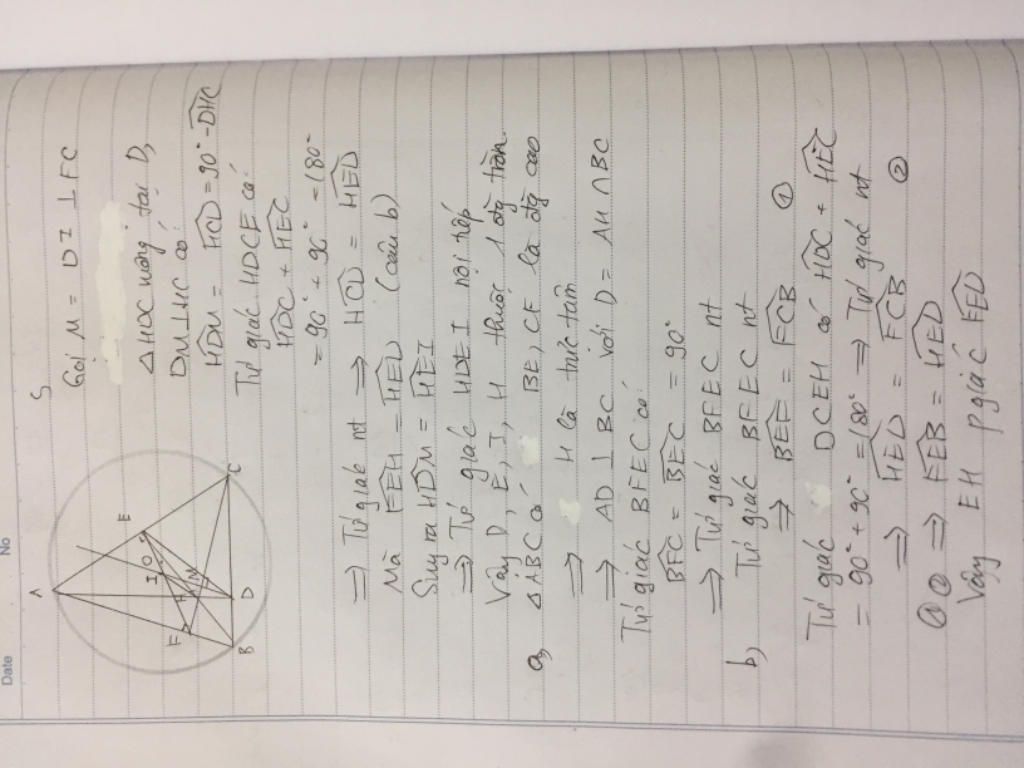 Date No
S
A
E
F
I
O
H
M
B
D
C
Gọi M = DI ⊥ FC
△HDC vuông tại D,
DM⊥HC có:
HDM = HCD = 90° - DHC
Tứ giác HDCE có:
HDC + HEC
= 90° + 90° = 180°
=> Tứ giác nt => HCD = HED
Mà FEH = HED (câu b)
Suy ra HDM = HEI
=> Tứ giác HDEI nội tiếp
Vậy D, E, I, H thuộc 1 đg tròn
a, △ABC có BE, CF là đg cao
=> H là trực tâm
=> AD ⊥ BC với D = AH ∩ BC
Tứ giác BFEC có:
BFC = BEC = 90°
=> Tứ giác BFEC nt
b, Tứ giác BFEC nt
=> BEF = FCB ①
Tứ giác DCEH có HDC + HEC
= 90° + 90° = 180° => Tứ giác nt
=> HED = FCB ②
① ② => FEB = HED
Vậy EH pgiác FED